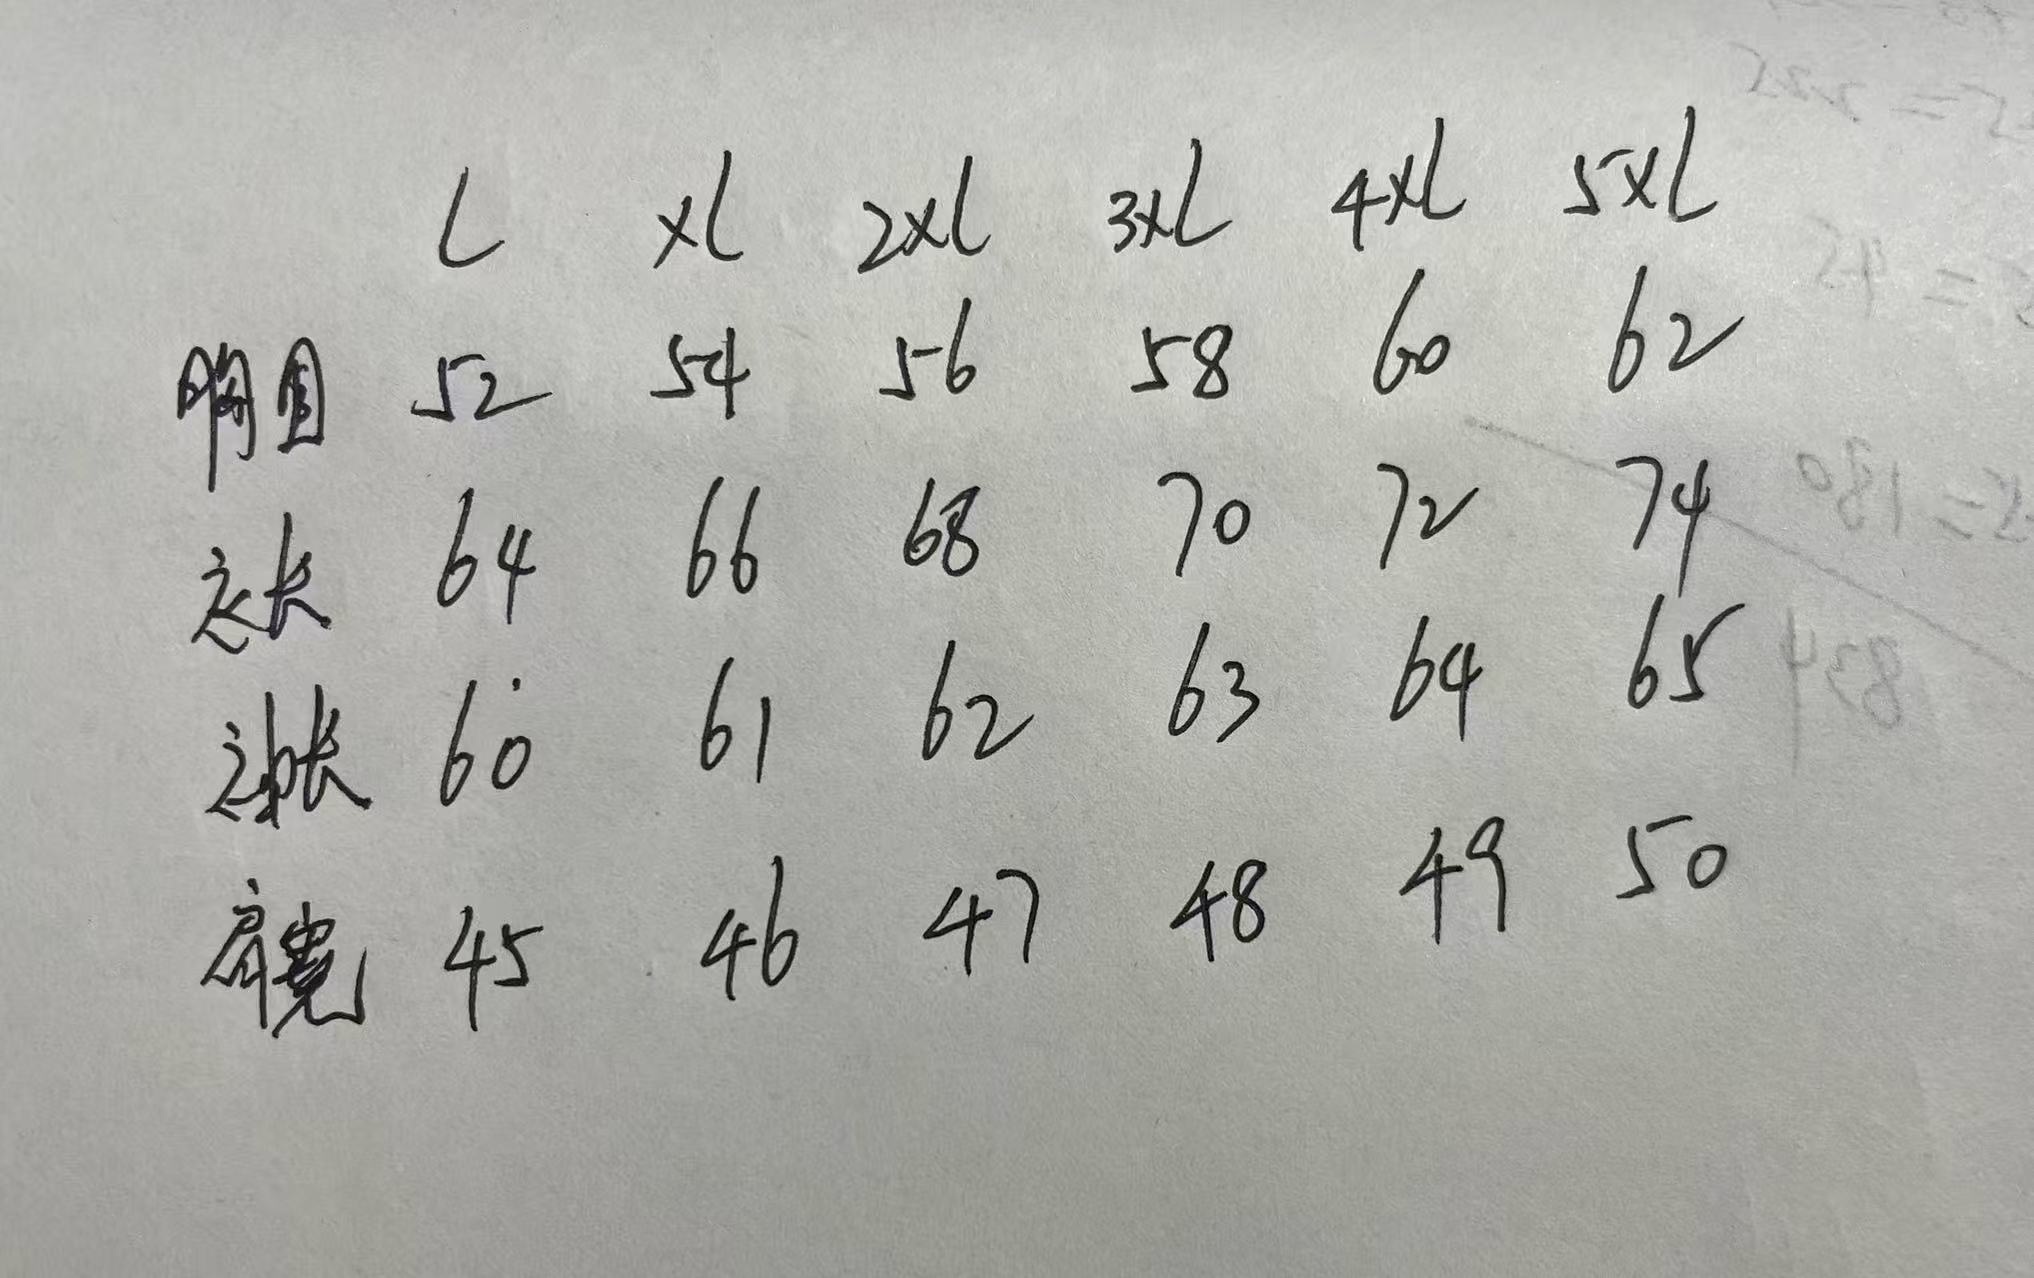 L XL 2XL 3XL 4XL 5XL
胸围 52 54 56 58 60 62
衣长 64 66 68 70 72 74
袖长 60 61 62 63 64 65
肩宽 45 46 47 48 49 50